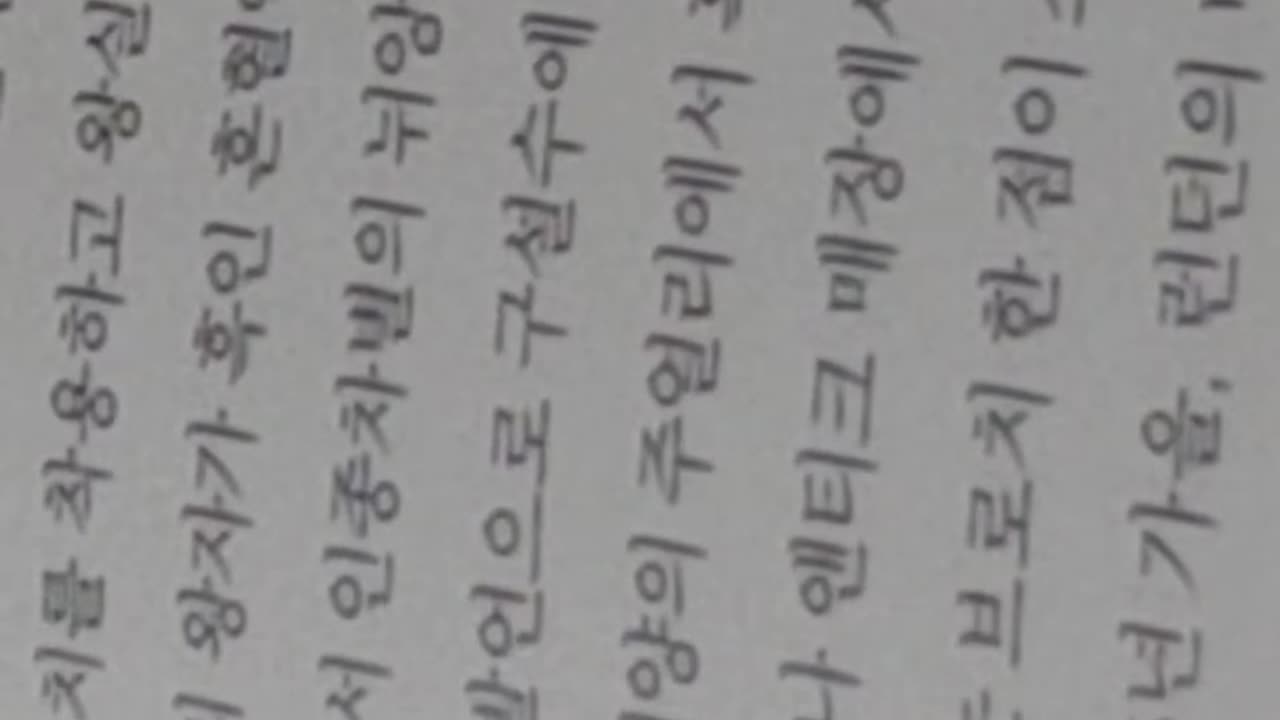 치를 착용하고 왕실
왕자가 흑인 혼혈
서 인종차별의 뉘앙
발언으로 구설수에
양의 주얼리에서
나 앤티크 매장에서
브로치 한 점이
년 가을, 런던의